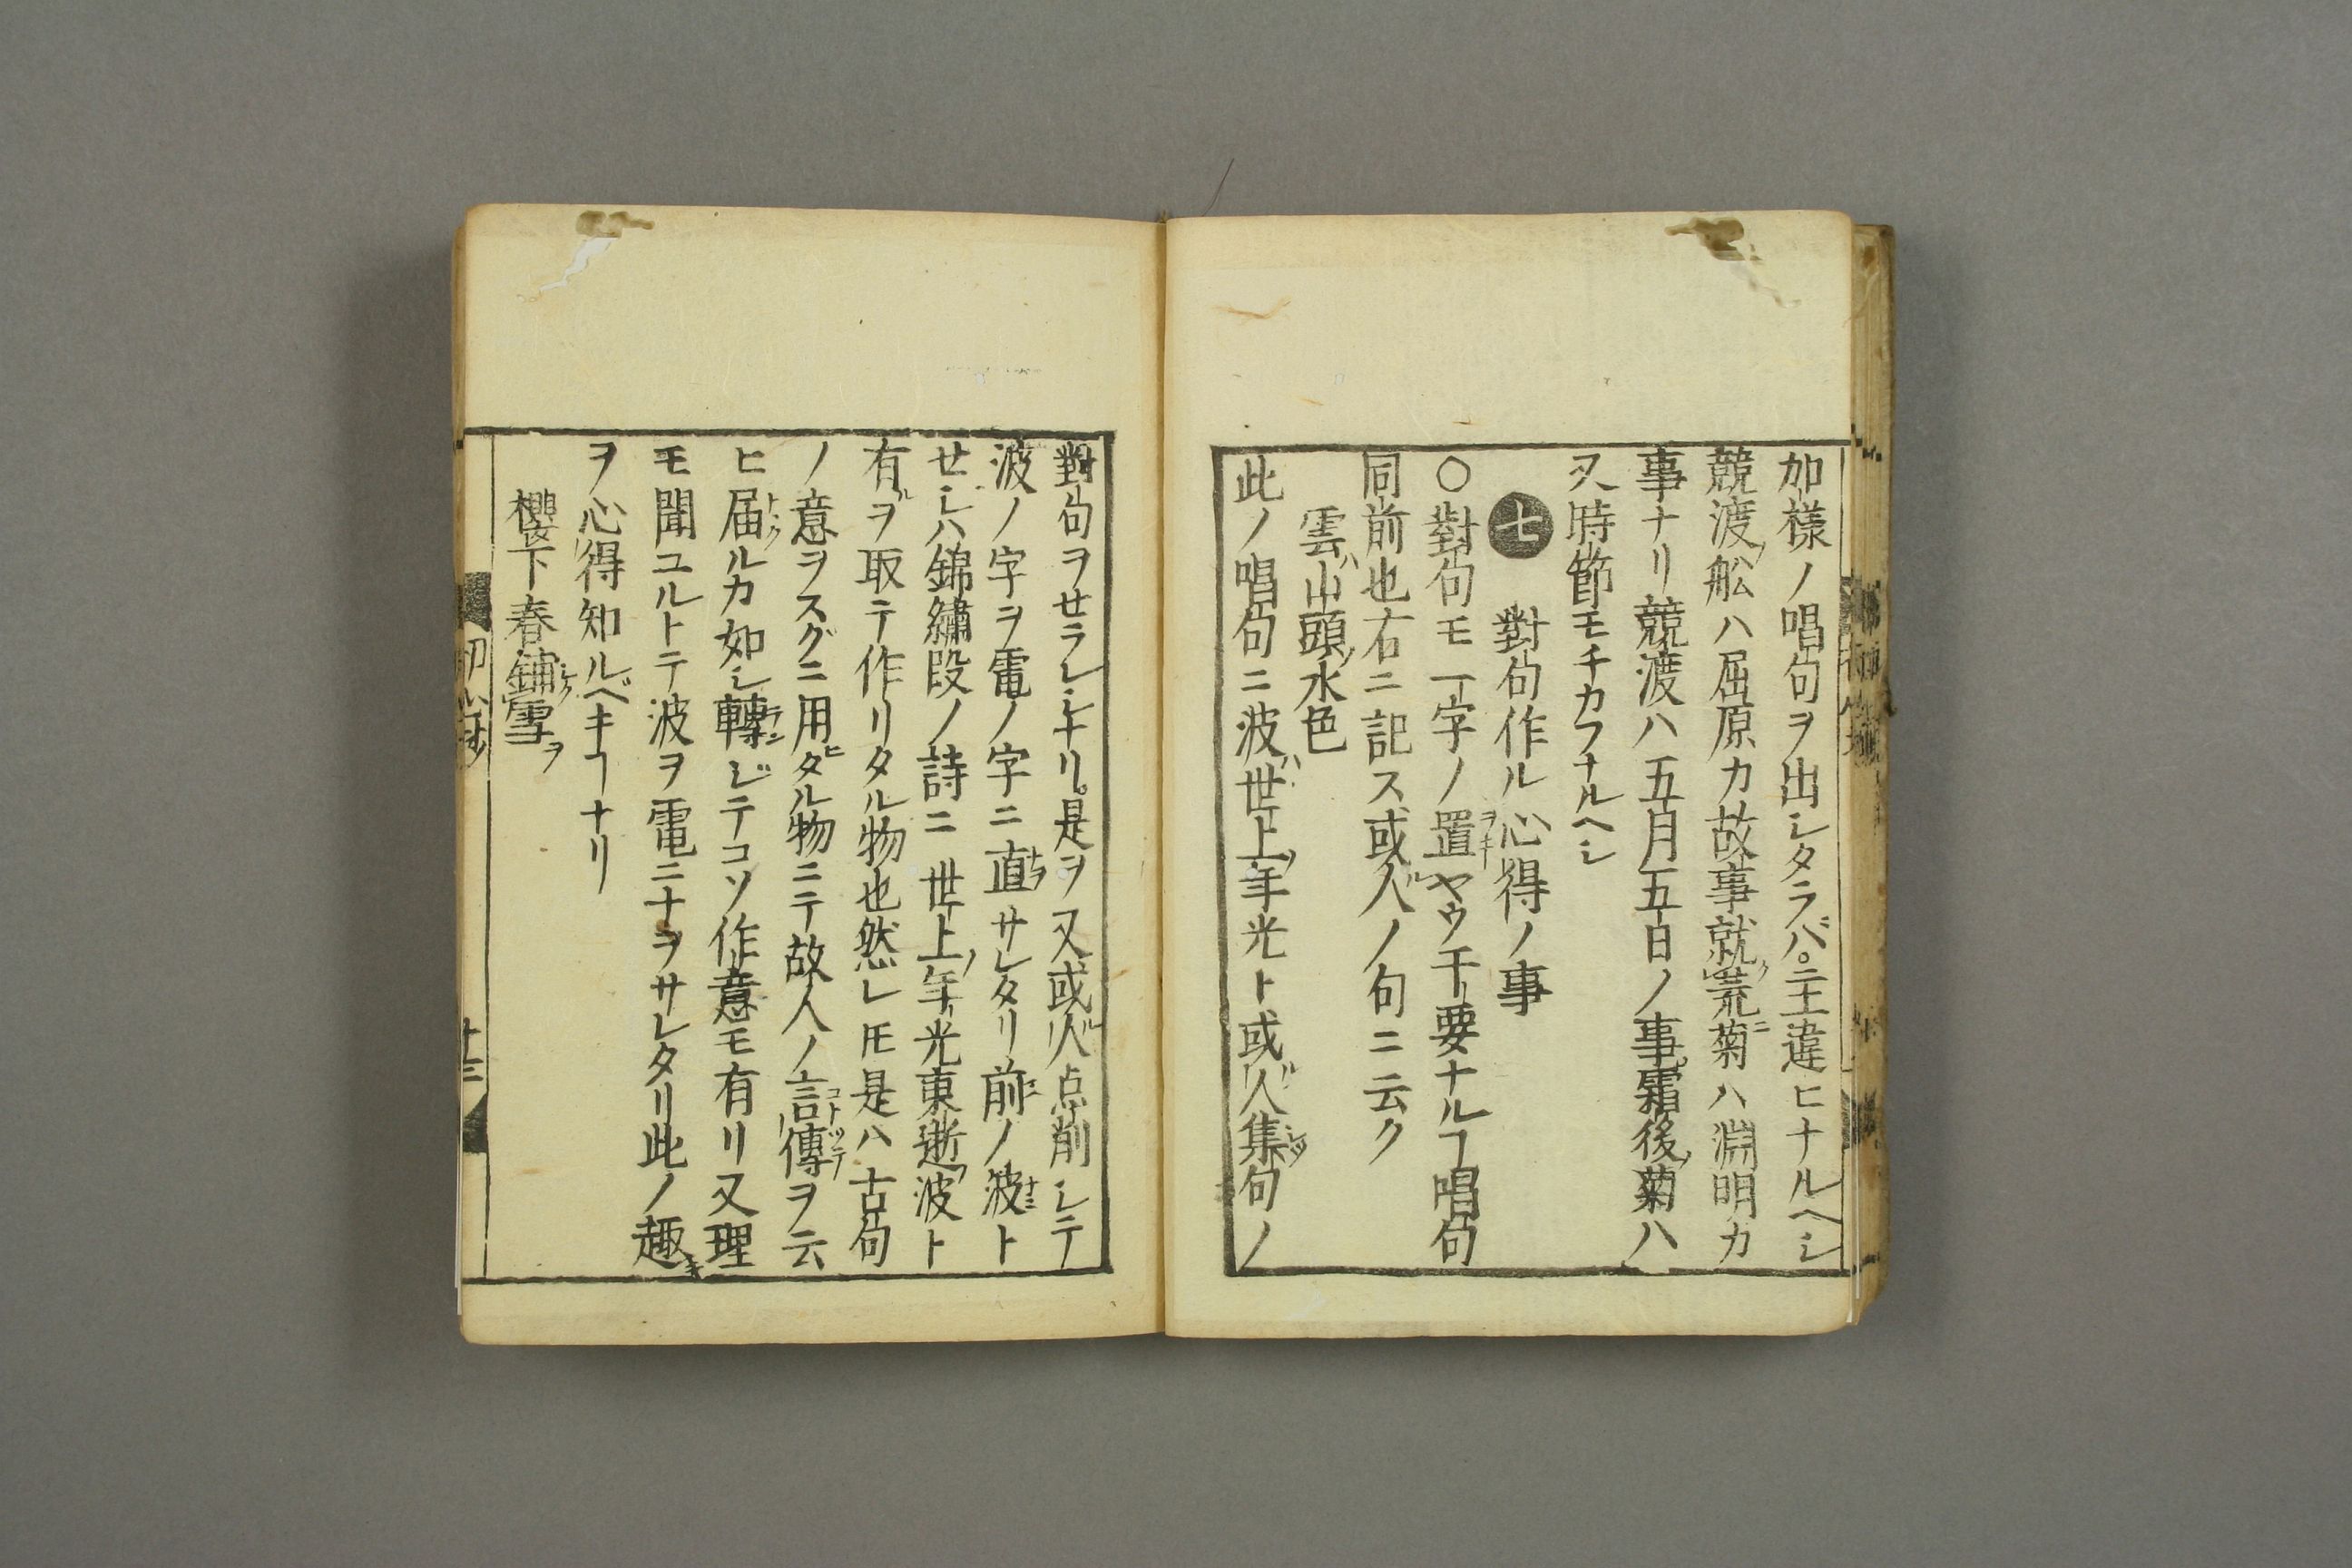 加様ノ唱句ヲ出シタラバ。二王違ヒナルヘシ
競渡ノ舩ハ屈原カ故事就ク荒ニ菊ハ淵明カ
事ナリ競渡ハ五月五日ノ事霜後ノ菊ハ
又時節モチカフナルヘシ
七 對句作ル心得ノ事
○對句モ一字ノ置ヤウ干要ナルヿ唱句
同前也右ニ記ス或人ノ句ニ云ク
雲ハ山頭ノ水色
此ノ唱句ニ波ハ世上ノ年光ト或人集句ノ
對句ヲセラレシキリ。是ヲ又或人点削シテ
波ノ字ヲ電ノ字ニ直サレタリ前ノ波ト
セシハ錦繡段ノ詩ニ世上ノ年光東逝ノ波ト
有ルヲ取テ作リタル物也然レ𪜈是ハ古句
ノ意ヲスグニ用ヒタル物ニテ故人ノ言傳ヲ云
ヒ届ルカ如シ轉ジテコソ作意モ有リ又理
モ聞ユルトテ波ヲ電ニナヲサレタリ此ノ趣キ
ヲ心得知ルベキヿナリ
櫻下春鋪雪ヲ
初心抄
十三